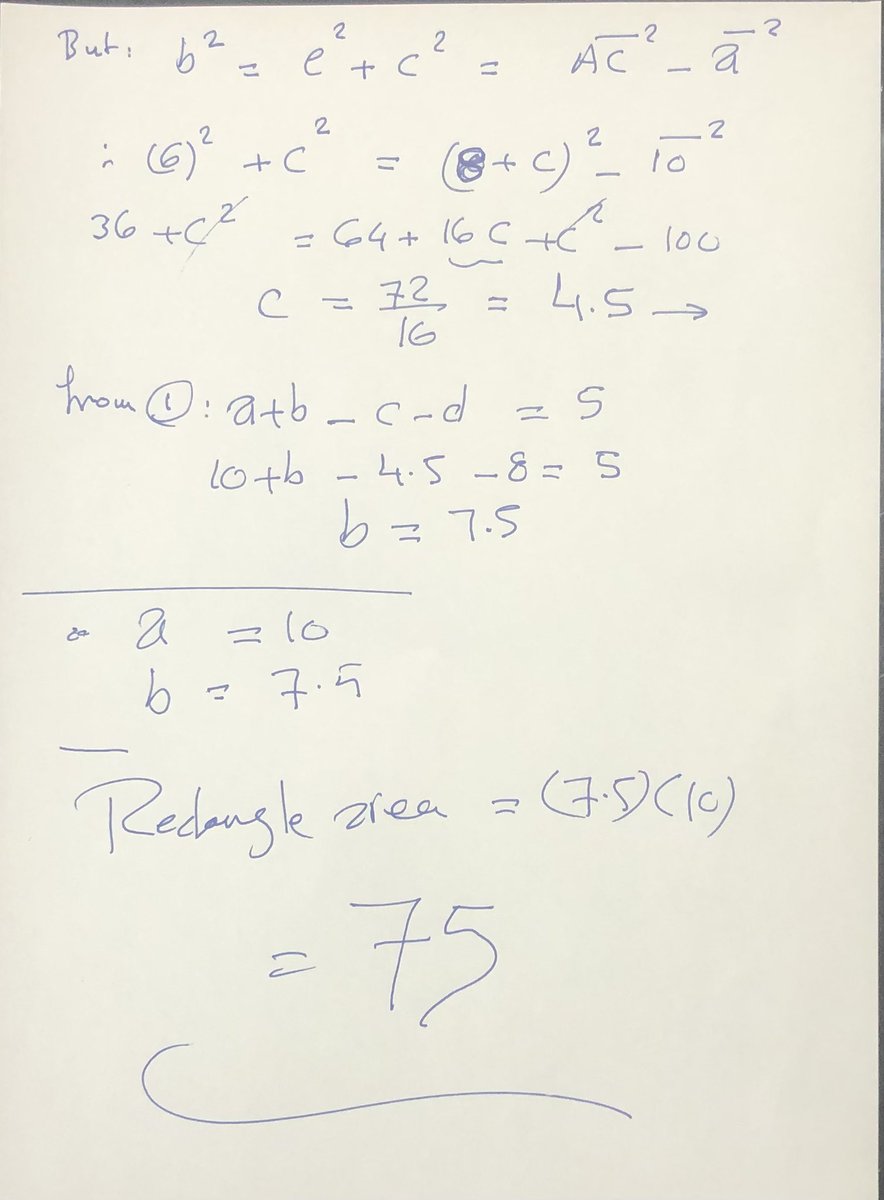 But: b² = e² + c² = A̅C̅² - a̅²
∴ (6)² + c² = (8 + c)² - 1̅0̅²
36 + c² = 64 + 16c + c² - 100
c = 72/16 = 4.5 →
from ①: a+b - c - d = 5
10+b - 4.5 - 8 = 5
b = 7.5
a = 10
b = 7.5
Rectangle area = (7.5)(10)
= 75